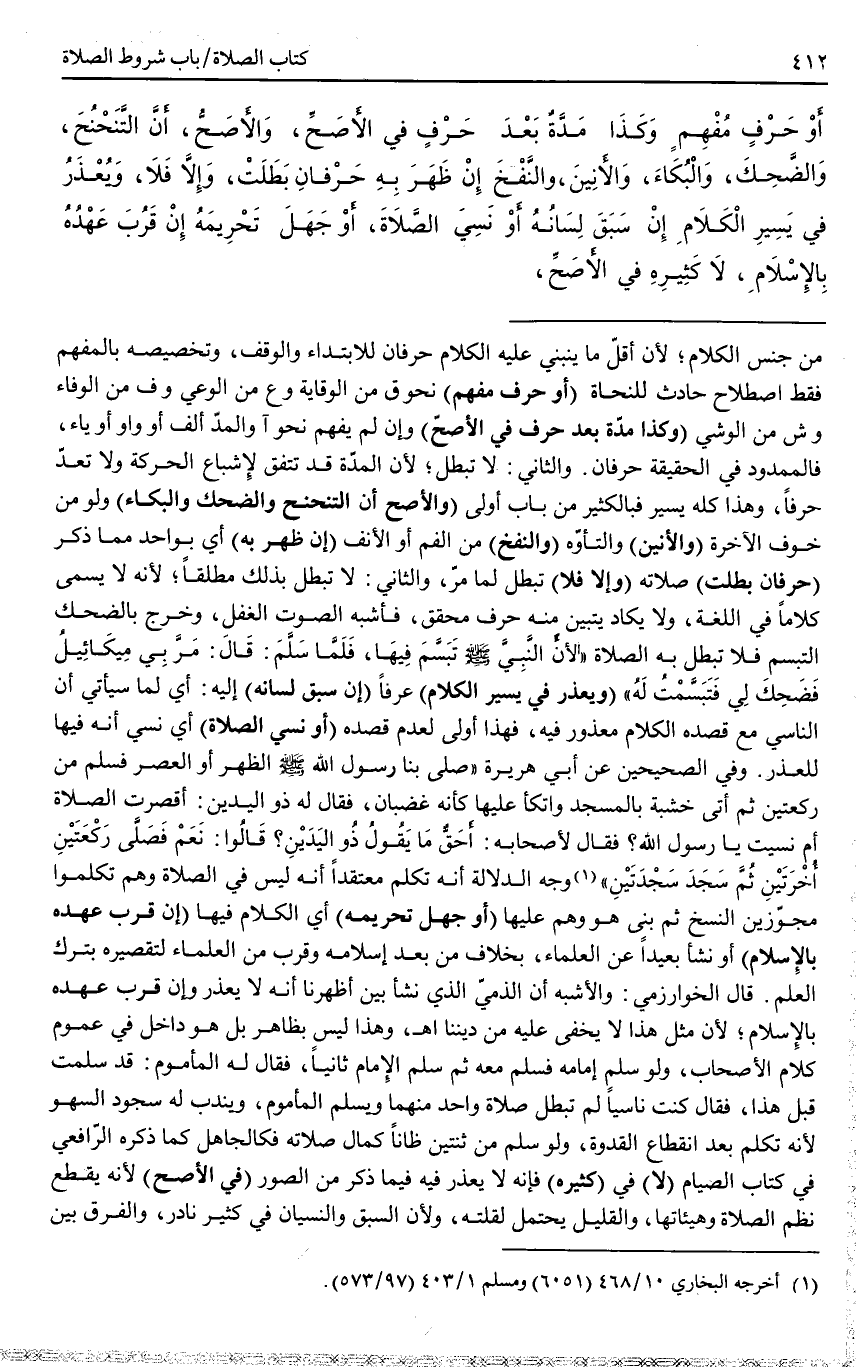 ٤١٢
كتاب الصلاة/باب شروط الصلاة
أَوْ حَرْفٍ مُفْهِمٍ وَكَذَا مَدَّةٌ بَعْدَ حَرْفٍ في الأَصَحِّ، وَالأَصَحُّ، أَنَّ التَّنَحْنُحَ،
وَالضَّحِكَ، وَالْبُكَاءَ، وَالأَنِينَ،والنَّفْخَ إِنْ ظَهَرَ بِهِ حَرْفانِ بَطَلَتْ، وَإِلَّا فَلَا، وَيُعْذَرُ
في يَسِيرِ الْكَلَامِ إِنْ سَبَقَ لِسَانُهُ أَوْ نَسِيَ الصَّلَاةَ، أَوْ جَهَلَ تَحْرِيمَهُ إِنْ قَرُبَ عَهْدُهُ
بِالإِسْلَامِ، لَا كَثِيرِهِ في الأَصَحِّ،
من جنس الكلام؛ لأن أقلّ ما ينبني عليه الكلام حرفان للابتداء والوقف، وتخصيصه بالمفهم
فقط اصطلاح حادث للنحاة (أو حرف مفهم) نحو ق من الوقاية وع من الوعي و ف من الوفاء
و ش من الوشي (وكذا مدّة بعد حرف في الأصحّ) وإن لم يفهم نحو آ والمدّ ألف أو واو أو ياء،
فالممدود في الحقيقة حرفان. والثاني: لا تبطل؛ لأن المدّة قد تتفق لإشباع الحركة ولا تعدّ
حرفاً، وهذا كله يسير فبالكثير من باب أولى (والأصح أن التنحنح والضحك والبكاء) ولو من
خوف الآخرة (والأنين) والتأوّه (والنفخ) من الفم أو الأنف (إن ظهر به) أي بواحد مما ذكر
(حرفان بطلت) صلاته (وإلا فلا) تبطل لما مرّ، والثاني: لا تبطل بذلك مطلقاً؛ لأنه لا يسمى
كلاماً في اللغة، ولا يكاد يتبين منه حرف محقق، فأشبه الصوت الغفل، وخرج بالضحك
التبسم فلا تبطل به الصلاة «لأنَّ النَّبِيَّ ﷺ تَبَسَّمَ فِيهَا، فَلَمَّا سَلَّمَ: قَالَ: مَرَّ بِي مِيكَائِيلُ
فَضَحِكَ لِي فَتَبَسَّمْتُ لَهُ» (ويعذر في يسير الكلام) عرفاً (إن سبق لسانه) إليه: أي لما سيأتي أن
الناسي مع قصده الكلام معذور فيه، فهذا أولى لعدم قصده (أو نسي الصلاة) أي نسي أنه فيها
للعذر. وفي الصحيحين عن أبي هريرة «صلى بنا رسول الله ﷺ الظهر أو العصر فسلم من
ركعتين ثم أتى خشبة بالمسجد واتكأ عليها كأنه غضبان، فقال له ذو اليدين: أقصرت الصلاة
أم نسيت يا رسول الله؟ فقال لأصحابه: أَحَقٌّ مَا يَقُولُ ذُو اليَدَيْنِ؟ قَالُوا: نَعَمْ فَصَلَّى رَكْعَتَيْنِ
أُخْرَتَيْنِ ثُمَّ سَجَدَ سَجْدَتَيْنِ»(١) وجه الدلالة أنه تكلم معتقداً أنه ليس في الصلاة وهم تكلموا
مجوّزين النسخ ثم بنى هو وهم عليها (أو جهل تحريمه) أي الكلام فيها (إن قرب عهده
بالإسلام) أو نشأ بعيداً عن العلماء، بخلاف من بعد إسلامه وقرب من العلماء لتقصيره بترك
العلم. قال الخوارزمي: والأشبه أن الذميّ الذي نشأ بين أظهرنا أنه لا يعذر وإن قرب عهده
بالإسلام؛ لأن مثل هذا لا يخفى عليه من ديننا اهـ، وهذا ليس بظاهر بل هو داخل في عموم
كلام الأصحاب، ولو سلم إمامه فسلم معه ثم سلم الإمام ثانياً، فقال له المأموم: قد سلمت
قبل هذا، فقال كنت ناسياً لم تبطل صلاة واحد منهما ويسلم المأموم، ويندب له سجود السهو
لأنه تكلم بعد انقطاع القدوة، ولو سلم من ثنتين ظاناً كمال صلاته فكالجاهل كما ذكره الرّافعي
في كتاب الصيام (لا) في (كثيره) فإنه لا يعذر فيه فيما ذكر من الصور (في الأصح) لأنه يقطع
نظم الصلاة وهيئاتها، والقليل يحتمل لقلته، ولأن السبق والنسيان في كثير نادر، والفرق بين
(١) أخرجه البخاري ٤٦٨/١٠ (٦٠٥١) ومسلم ٤٠٣/١ (٥٧٣/٩٧).